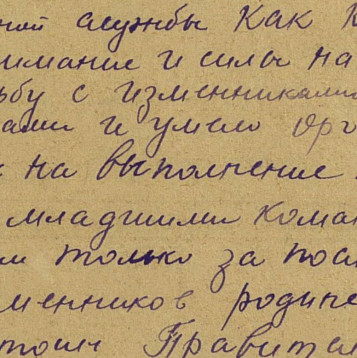 ной службы как
имание и силы на
ьбу с изменниками
ами и умело орг
на выполнение
младшими коман
и только за посл
менников родине
тоит Правител